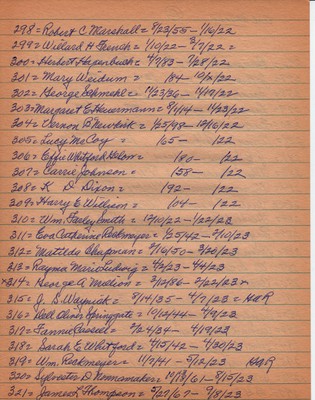 298 = Robert C. Marshall = 8/23/55 - 1/16/22
299 = Willard H. French = 1/10/22 - 3/7/22 =
300 = Herbert = 4/7/83 - 7/28/22
301 = Mary Weidum = 184- 10/2/22
302 = George = 11/23/36 - 4/19/22
303 = Margaret E Heuermann = 8/1/14 - 11/23/22
304 = Vernon B Newkirk = 1/25/48 - 12/16/22
305 = Lucy McCoy = 165- 122
306 = Effie Whitford = 180- 122
307 = Carrie Johnson = 158- 122
308 = K. D. Dixon = 192- 122
309 = Harry E Willson = 104- 122
310 = Wm. Farley Smith = 12/10/22 - 1/22/23
311 = Eva Catherine Rockmeyer = 1/25/42 - 2/10/23
312 = Matilda Chapman = 2/16/50 - 3/20/23
313 = Rayma Meris Ludwig = 4/2/23 - 4/4/23
x314 = George A Motion = 2/12/86 - 2/22/23 x
315 = J. S Wagnick = 7/14/35 - 4/7/23 = H&R
316 = Dell Oliver Springgate = 10/12/44 - 4/9/23
317 = Fannie Russell = 2/24/34 - 4/19/23
318 = Sarah E Whitford = 4/15/42 - 4/20/23
319 = Wm. Rockmeyer = 11/7/41 - 5/12/23 H&R
320 = Sylvester D. = /61 - 8/15/23
321 = James K Thompson = 4/27/67 - 9/8/23